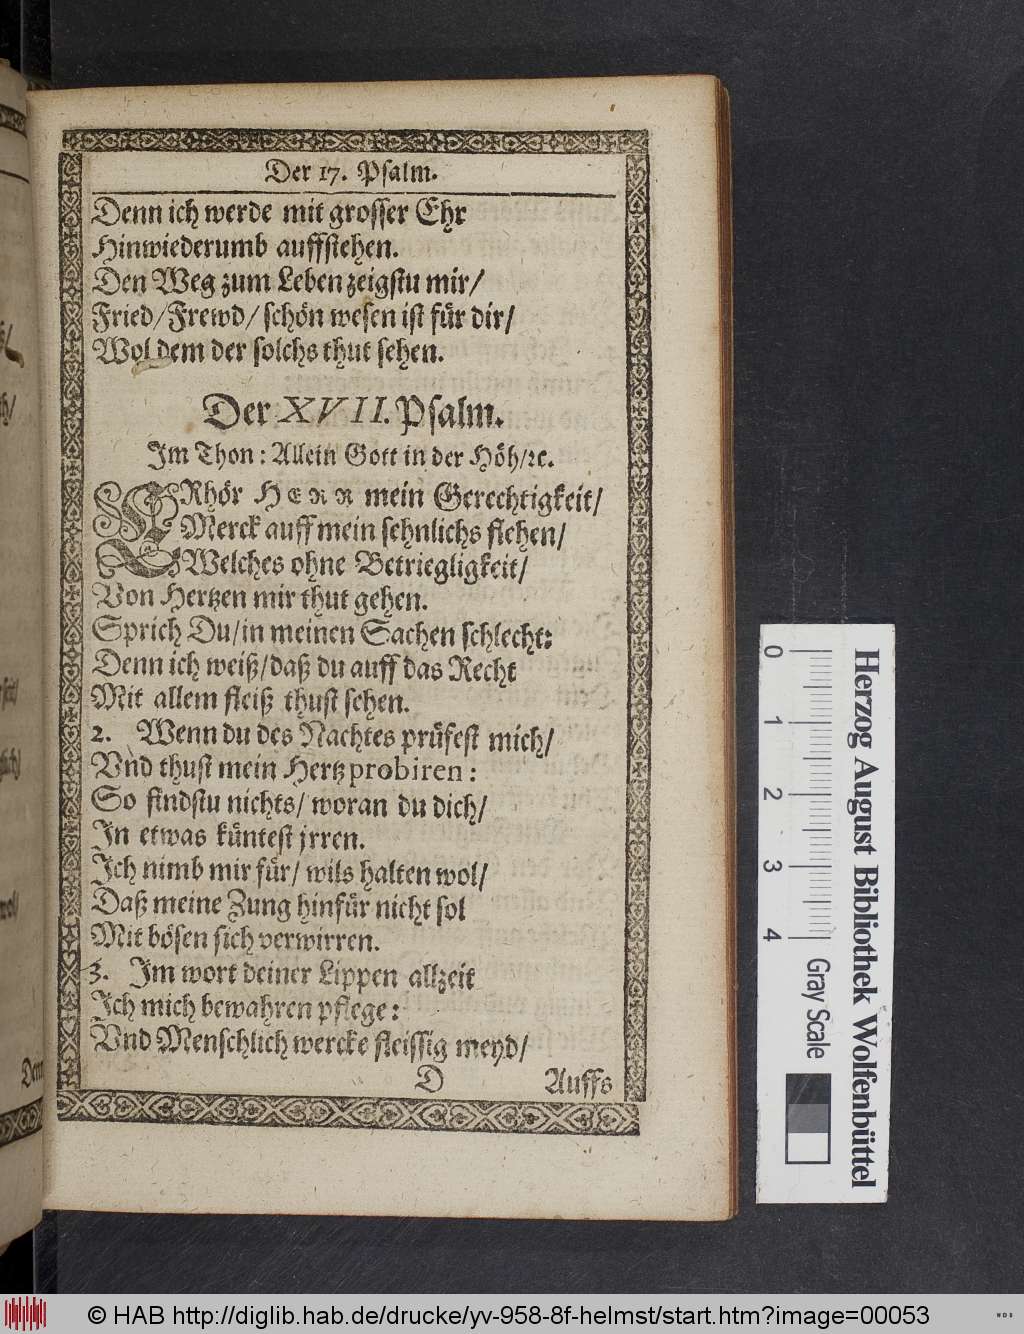 Der 17. Psalm.
Denn ich werde mit grosser Ehr
Hinwiederumb aufffstehen.
Den Weg zum Leben zeigstu mir/
Fried/ Frewd/ schön wesen ist für dir/
Wol dem der solchs thut sehen.
Der XVII. Psalm.
Im Thon: Allein Gott in der Höh/ꝛc.
ERhör HERR mein Gerechtigkeit/
Merck auff mein sehnlichs flehen/
Welches ohne Betriegligkeit/
Von Hertzen mir thut gehen.
Sprich Du/in meinen Sachen schlecht:
Denn ich weiß/daß du auff das Recht
Mit allem fleiß thust sehen.
2. Wenn du des Nachtes prüfest mich/
Vnd thust mein Hertz probiren:
So findstu nichts/ woran du dich/
In etwas küntest jrren.
Ich nimb mir für/ wils halten wol/
Daß meine Zung hinfür nicht sol
Mit bösen sich verwirren.
3. Im wort deiner Lippen allzeit
Ich mich bewahren pflege:
Vnd Menschlich wercke fleissig meyd/
D Auffs
Denn
0 1 2 3 4 Gray Scale
Herzog August Bibliothek Wolfenbüttel
© HAB http://diglib.hab.de/drucke/yv-958-8f-helmst/start.htm?image=00053